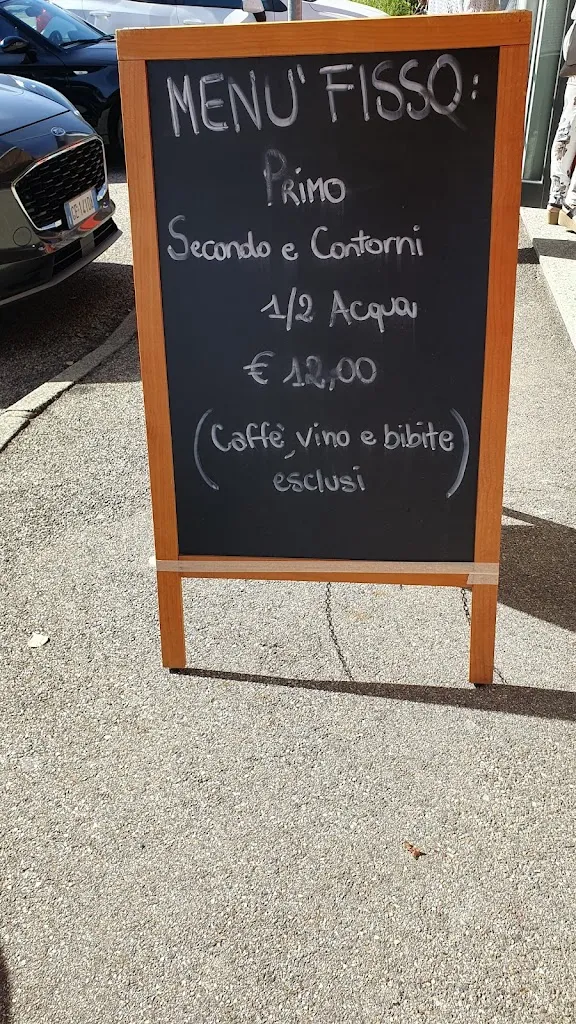 MENU' FISSO:
Primo
Secondo e Contorni
1/2 Acqua
€ 12,00
(Caffè, vino e bibite
esclusi)